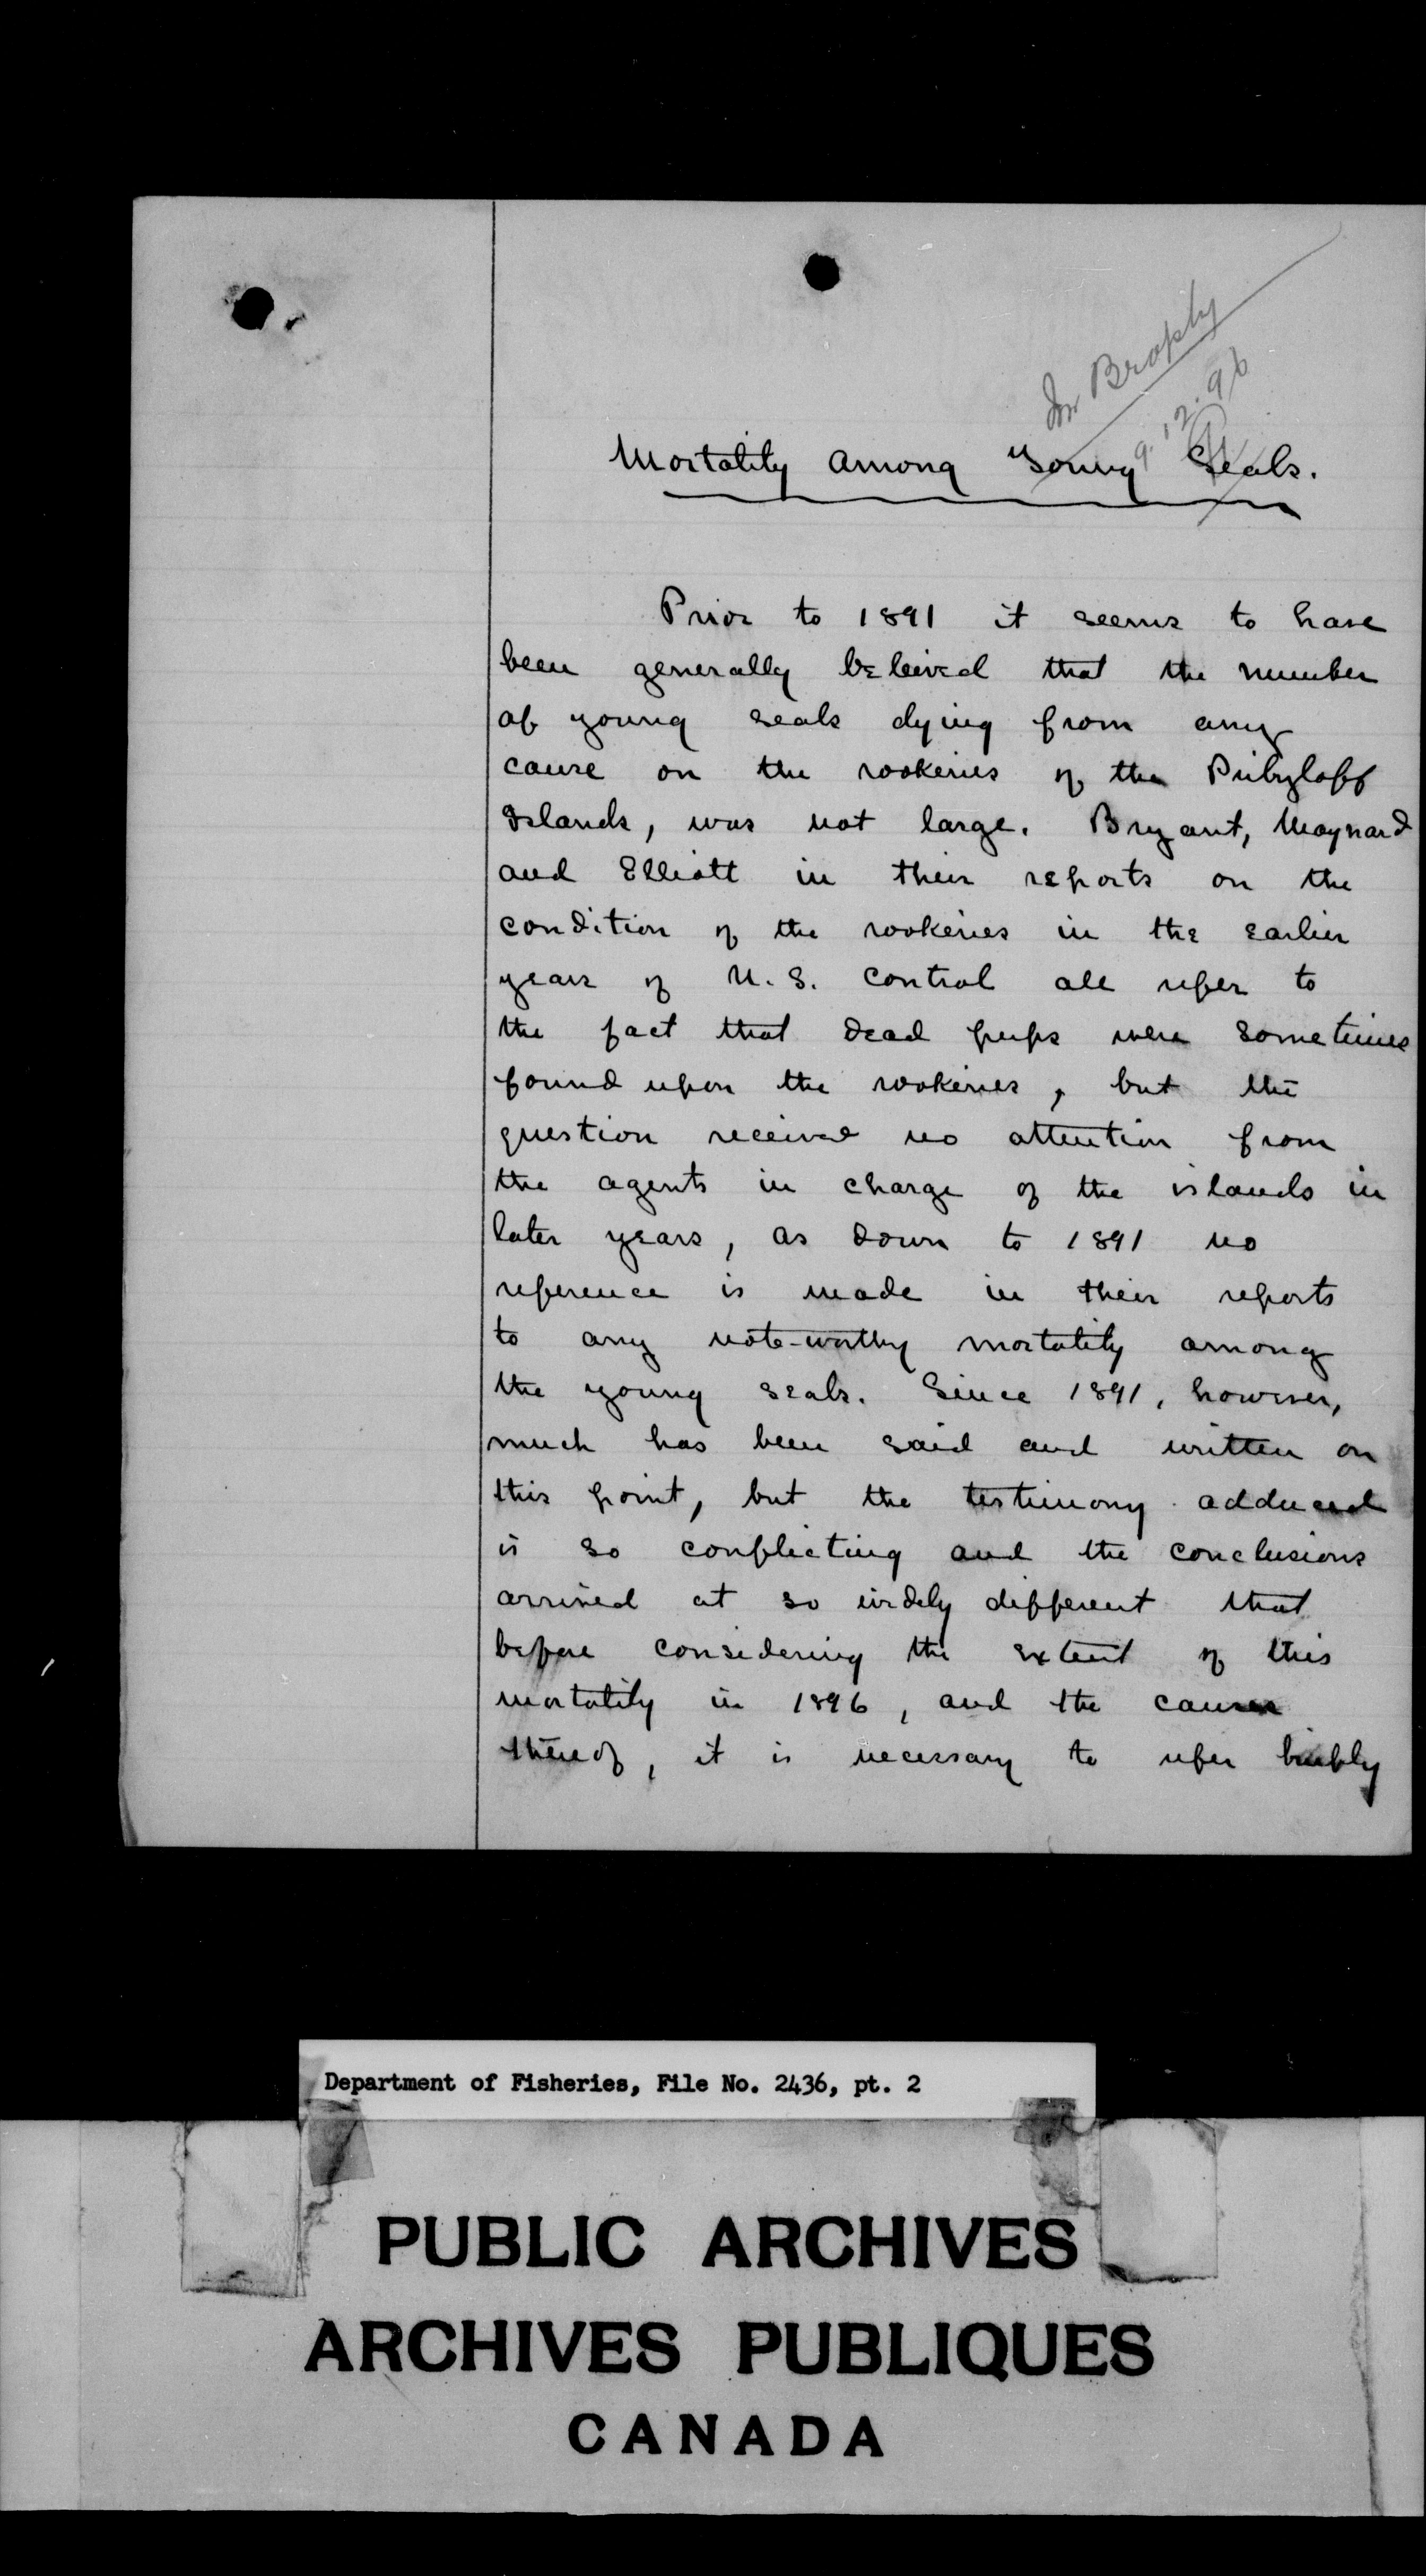 Mr Brophy
9.12.96
Mortality among Young Seals.
Prior to 1891 it seems to have
been generally beleived that the number
of young seals dying from any
cause on the rookeries of the Pribyloff
Islands, was not large. Bryant, Maynard
and Elliott in their reports on the
condition of the rookeries in the earlier
years of U.S. control all refer to
the fact that dead pups were sometimes
found upon the rookeries, but the
question received no attention from
the agents in charge of the islands in
later years, as down to 1891 no
reference is made in their reports
to any note-worthy mortality among
the young seals. Since 1891, however,
much has been said and written on
this point, but the testimony adduced
is so conflicting and the conclusions
arrived at so widely different that
before considering the extent of this
mortality in 1896, and the causes
thereof, it is necessary to refer briefly
Department of Fisheries, File No. 2436, pt. 2
PUBLIC ARCHIVES
ARCHIVES PUBLIQUES
CANADA